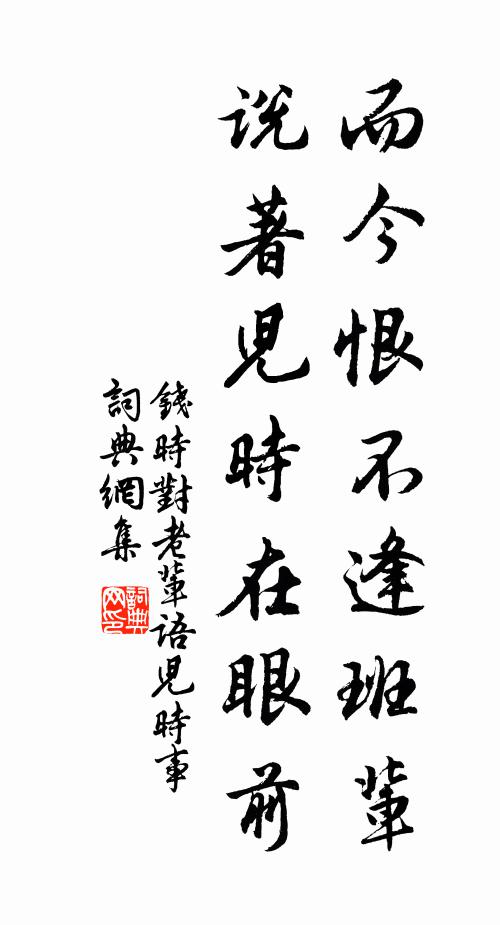 而今恨不逢班輩
說著兒時在眼前
錢時對老輩語兒時事
詞典網集
詞典网印